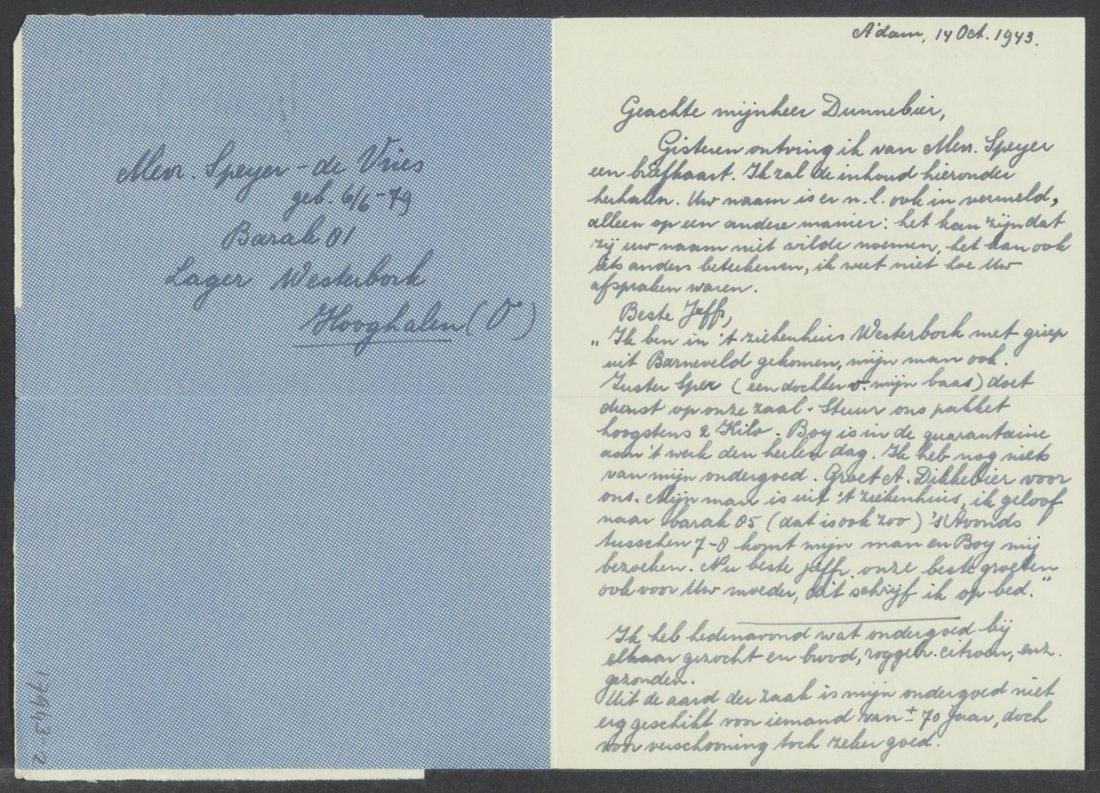 Mevr. Speyer-de Vries
geb. 6/6-79
Barak 81
Lager Westerbork
Hooghalen (O)
17943-2
A'dam, 14 Oct. 1943.
Geachte mijnheer Dunnebier,
Gisteren ontving ik van Mevr. Speyer
een briefkaart. Ik zal de inhoud hieronder
herhalen. Uw naam is er n.l. ook in vermeld,
alleen op een andere manier: het kan zijn dat
zij uw naam niet wilde noemen, het kan ook
iets anders beteekenen, ik weet niet hoe Uw
afspraken waren.
Beste Jeffr,
"Ik ben in 't ziekenhuis Westerbork met griep
uit Barneveld gekomen, mijn man ook.
Zuster Spex (een dochter v. mijn baas) doet
dienst op onze zaal. Stuur ons pakket
hoogstens 2 Kilo. Boy is in de quarantaine
aan 't werk den heelen dag. Ik heb nog niets
van mijn ondergoed. Groet A. Dikkebier voor
ons. Mijn man is uit 't ziekenhuis, ik geloof
naar barak 85 (dat is ook zoo) 's Avonds
tusschen 7-8 komt mijn man en Boy mij
bezoeken. Nu beste jeffr. onze beste groeten
ook voor Uw moeder, dit schrijf ik op bed."
Ik heb hedenavond wat ondergoed bij
elkaar gezocht en brood, roggebr. citroen, enz.
gezonden.
Uit de aard der zaak is mijn ondergoed niet
erg geschikt voor iemand van ± 70 jaar, doch
voor verschooning toch zeker goed.